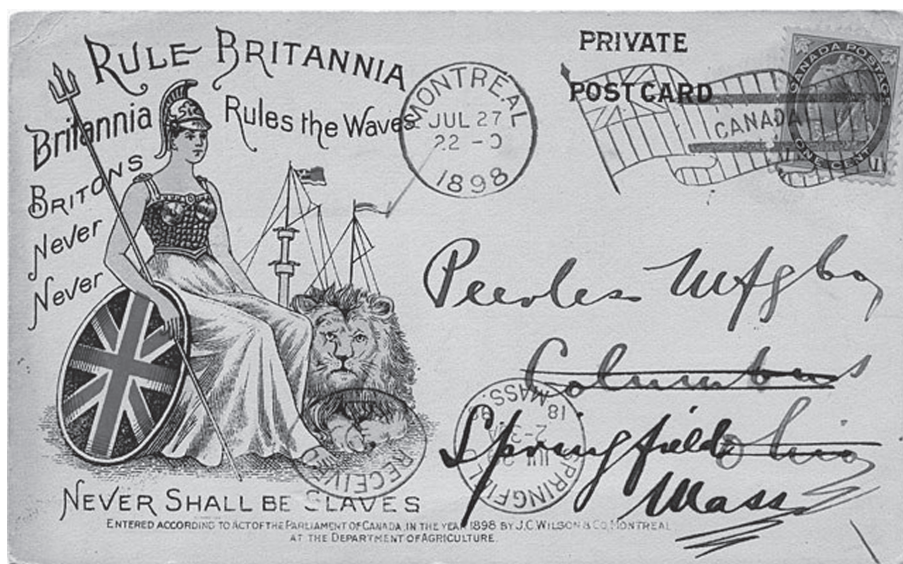 RULE BRITANNIA
Britannia Rules the Waves
BRITONS
Never
Never
NEVER SHALL BE SLAVES
ENTERED ACCORDING TO ACT OF THE PARLIAMENT OF CANADA IN THE YEAR 1898 BY J.C. WILSON & CO. MONTREAL
AT THE DEPARTMENT OF AGRICULTURE.
PRIVATE
POST CARD
MONTREAL
JUL 27
22-0
1898
CANADA
CANADA POSTAGE
ONE CENT
Peerless Mfg Co
Columbus
Ohio
Springfield
Mass
RECEIVED
SPRINGFIELD
MASS.